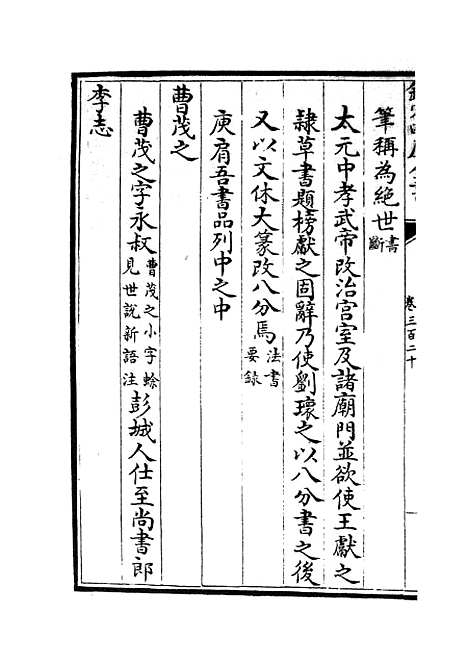 筆稱為絕世書斷
太元中孝武帝改治宫室及諸廟門並欲使王獻之
隸草書題榜獻之固辭乃使劉瓌之以八分書之後
又以文休大篆改八分焉法書要錄
庾肩吾書品列中之中
曹茂之
曹茂之字永叔曹茂之小字蜍見世說新語注彭城人仕至尚書郎
李志
卷三百二十